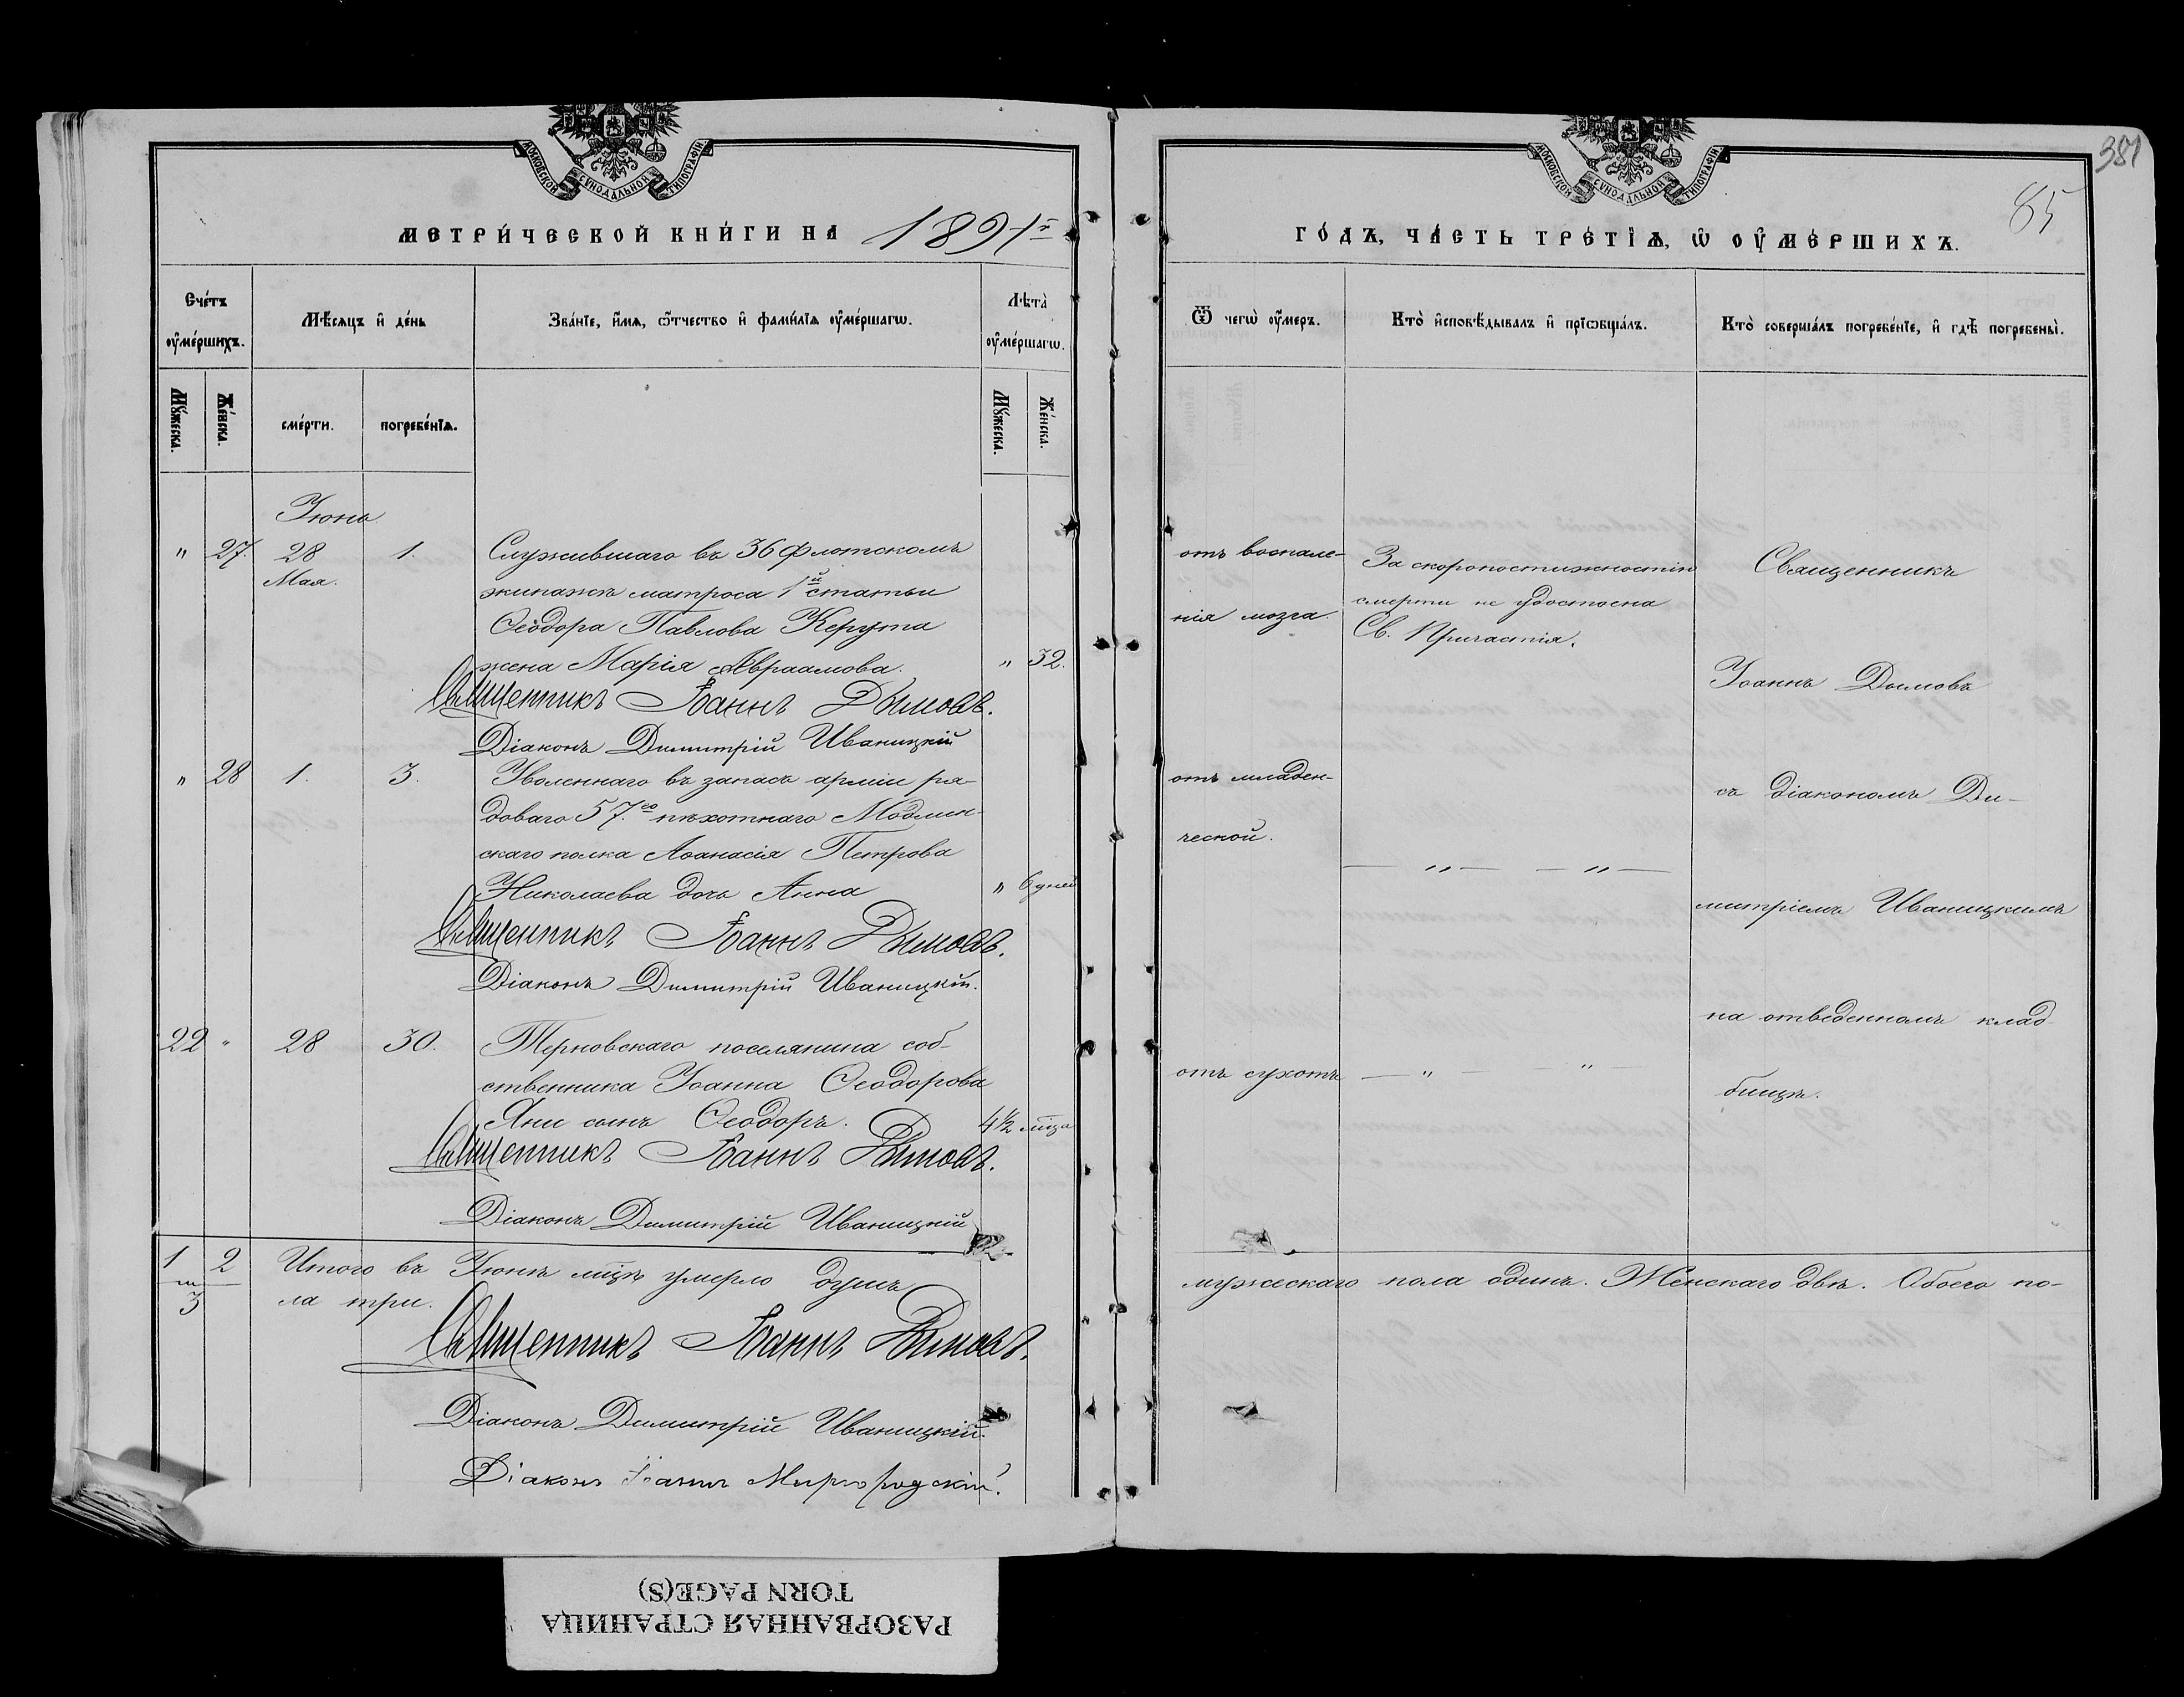 МОСКОВСКОЙ СѴНОДАЛЬНОЙ ТИПОГРАФІИ.
МЕТРИ́ЧЕСКОЙ КНИ́ГИ НА 1891й
Сче́тъ ᲂу҆ме́ршихъ.
Мѣ́сяцъ и҆ де́нь
Зва́нїе, и҆́мѧ, ѻ҆́тчество и҆ фами́лїѧ ᲂу҆ме́ршагѡ.
Лѣта̀ ᲂу҆ме́ршагѡ.
Мꙋ́жеска.
Же́нска.
сме́рти.
погребе́нїѧ.
Мꙋ́жеска.
Же́нска.
Іюнь
" 27. 28 1. Служившаго въ 36 флотскомъ
Мая. экипажѣ матроса 1й статьи
Ѳеодора Павлова Керута
жена Марія Авраамова. " 32.
Священникъ Іоаннъ Дымовъ.
Діаконъ Димитрій Иваницкій
" 28 1. 3. Уволеннаго въ запасъ арміи ря-
доваго 57.го пѣхотнаго Модлин-
скаго полка Аѳанасія Петрова
Николаева дочь Анна " 6 дней
Священникъ Іоаннъ Дымовъ.
Діаконъ Димитрій Иваницкій.
22 " 28 30. Терновскаго поселянина соб-
ственника Іоанна Ѳеодорова
Яни сынъ Ѳеодоръ. 4½ мѣца
Священникъ Іоаннъ Дымовъ.
Діаконъ Димитрій Иваницкій
1 2 Итого въ Іюнѣ мѣцѣ умерло душъ
3 ла три.
Священникъ Іоаннъ Дымовъ.
Діаконъ Димитрій Иваницкій.
Діаконъ Іоаннъ Миргородскій.
381
85
МОСКОВСКОЙ СѴНОДАЛЬНОЙ ТИПОГРАФІИ.
ГО́ДЪ, ЧА́СТЬ ТРЕ́ТЇѦ, Ѡ҆ ОУ҆МЕ́РШИХЪ.
Ѿ чегѡ̀ ᲂу҆́меръ.
Кто̀ и҆сповѣ́дывалъ и҆ прїѡбща́лъ.
Кто̀ соверша́лъ погребе́нїе, и҆ гдѣ̀ погребены̀.
отъ воспале-
нія мозга.
За скоропостижностію
смерти не удостоена
Св. Причастія.
Священникъ
Іоаннъ Дымовъ
отъ младен-
ческой.
— " — — " —
съ діакономъ Ди-
митріемъ Иваницкимъ
на отведенномъ клад-
бищѣ.
отъ сухотъ — " — — " —
мужескаго пола одинъ. Женскаго двѣ. Обоего по-
РАЗОРВАННАЯ СТРАНИЦА
TORN PAGE(S)